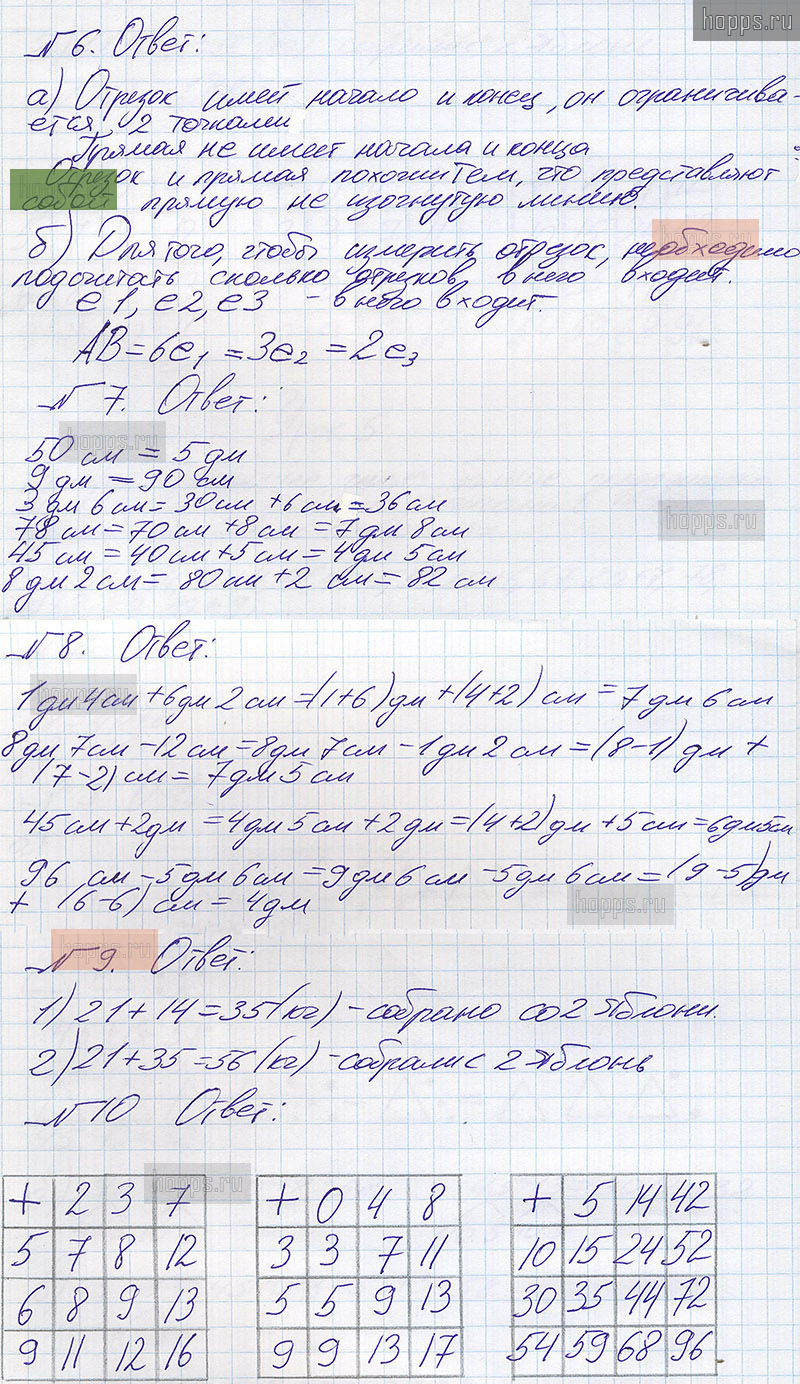 hopps.ru
№ 6. Ответ:
а) Отрезок имеет начало и конец, он ограничива-
ется, 2 точками
Прямая не имеет начала и конца
Отрезок и прямая похожи тем, что представляют
собой прямую не изогнутую линию.
hopps.ru
б) Для того, чтобы измерить отрезок, необходимо
подсчитать сколько отрезков в него входит.
е1, е2, е3 - в него входит.
АВ = 6е₁ = 3е₂ = 2е₃
№ 7. Ответ:
hopps.ru
50 см = 5 дм
9 дм = 90 см
3 дм 6 см = 30 см + 6 см = 36 см
hopps.ru
78 см = 70 см + 8 см = 7 дм 8 см
45 см = 40 см + 5 см = 4 дм 5 см
8 дм 2 см = 80 см + 2 см = 82 см
№ 8. Ответ:
hopps.ru
1 дм 4 см + 6 дм 2 см = (1+6) дм + (4+2) см = 7 дм 6 см
8 дм 7 см - 12 см = 8 дм 7 см - 1 дм 2 см = (8-1) дм +
(7-2) см = 7 дм 5 см
45 см + 2 дм = 4 дм 5 см + 2 дм = (4+2) дм + 5 см = 6 дм 5 см
96 см - 5 дм 6 см = 9 дм 6 см - 5 дм 6 см = (9-5) дм
+ (6-6) см = 4 дм
hopps.ru
hopps.ru
№ 9. Ответ:
1) 21 + 14 = 35 (кг) - собрано со 2 яблони.
2) 21 + 35 = 56 (кг) - собрали с 2 яблонь
№ 10 Ответ:
hopps.ru
+ 2 3 7
5 7 8 12
6 8 9 13
9 11 12 16
+ 0 4 8
3 3 7 11
5 5 9 13
9 9 13 17
+ 5 14 42
10 15 24 52
30 35 44 72
54 59 68 96